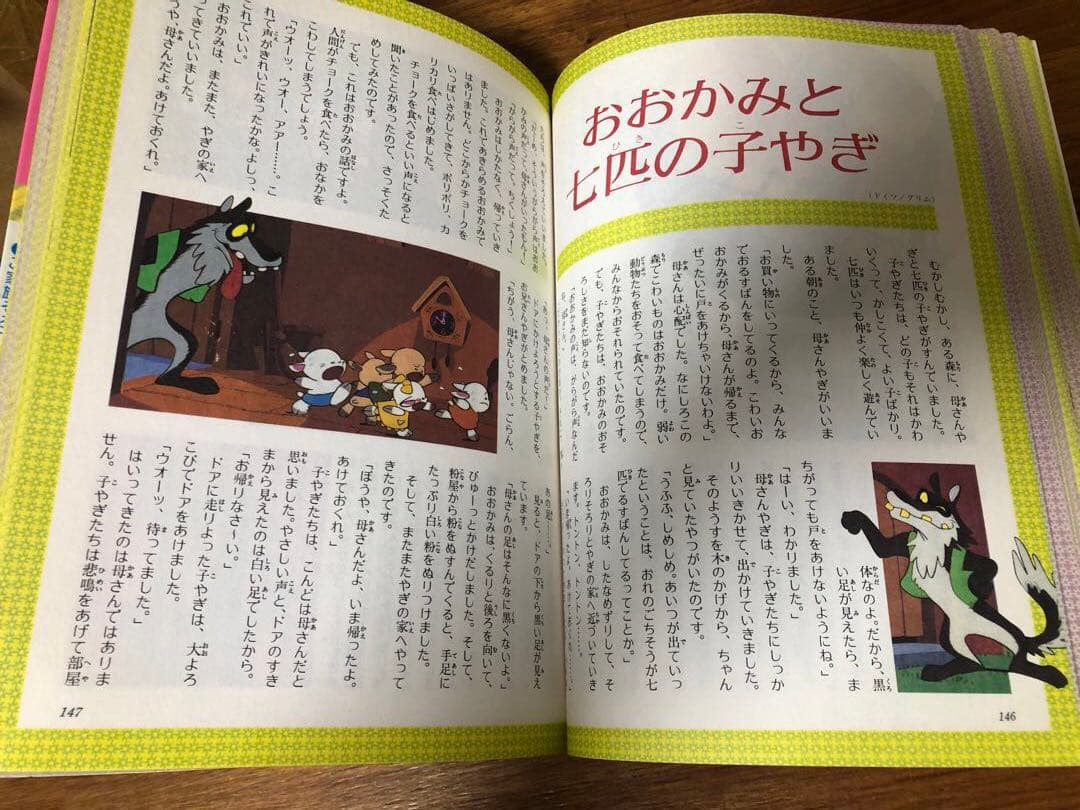 おおかみと
七匹の子やぎ
(ドイツ／グリム)
むかしむかし、ある森に、母さんや
ぎと七匹の子やぎがすんでいました。
子やぎたちは、どの子もそれはかわ
いくって、かしこくて、よい子ばかり。
七匹はいつも仲よく楽しく遊んでい
ました。
ある朝のこと、母さんやぎがいいま
した。
「お買い物にいってくるから、みんな
でおるすばんをしてるのよ。こわいお
おかみがくるから、母さんが帰るまで、
ぜったいに戸をあけちゃいけないわよ。」
母さんは心配でした。なにしろこの
森でこわいものはおおかみだけ。弱い
動物たちをおそって食べてしまうので、
みんなからおそれられていたのです。
でも、子やぎたちは、おおかみのおそ
ろしさをまだ知らないのです。
「おおかみの声は、がらがら声なんだ
体なのよ。だから、黒
い足が見えたら、ま
ちがっても戸をあけないようにね。」
「はーい、わかりました。」
母さんやぎは、子やぎたちにしっか
りいいきかせて、出かけていきました。
そのようすを木のかげから、ちゃん
と見ていたやつがいたのです。
「うふふ、しめしめ。あいつが出ていっ
たということは、おれのごちそうが七
匹でるすばんしてるってことか。」
おおかみは、したなめずりして、そ
ろりそろりとやぎの家へ近づいていき
ます。トントン、トントン……。
146
おおかみはしかたなく、帰っていき
ました。これであきらめるおおかみで
はありません。どこからかチョークを
いっぱいさがしてきて、ポリポリ、カ
リカリ食べはじめました。
チョークを食べるといい声になると
聞いたことがあったので、さっそくた
めしてみたのです。
でも、これはおおかみの話ですよ。
人間がチョークを食べたら、おなかを
こわしてしまうでしょう。
「ウオーッ、ウオー、アアー……。こ
れで声がきれいになったかな。よしっ、
これでいい。」
おおかみは、またまた、やぎの家へ
やってきていいました。
「ぼうや、母さんだよ。あけておくれ。」
ドアにかけよろうとする子やぎを、
お兄さんやぎがとめました。
「ちがう、母さんじゃない。ごらん、
見ると、ドアの下から黒い足が見え
ています。
「母さんの足はそんなに黒くないよ。」
おおかみは、くるりと後ろを向いて、
びゅーっとかけだしました。そして、
粉屋から粉をぬすんでくると、手足に
たっぷり白い粉をぬりつけました。
そして、またまたやぎの家へやって
きたのです。
「ぼうや、母さんだよ、いま帰ったよ。
あけておくれ。」
子やぎたちは、こんどは母さんだと
思いました。やさしい声と、ドアのすき
まから見えたのは白い足でしたから。
「お帰りなさ〜い。」
ドアに走りよった子やぎは、大よろ
こびでドアをあけました。
「ウオーッ、待ってました。」
はいってきたのは母さんではありま
せん。子やぎたちは悲鳴をあげて部屋
147